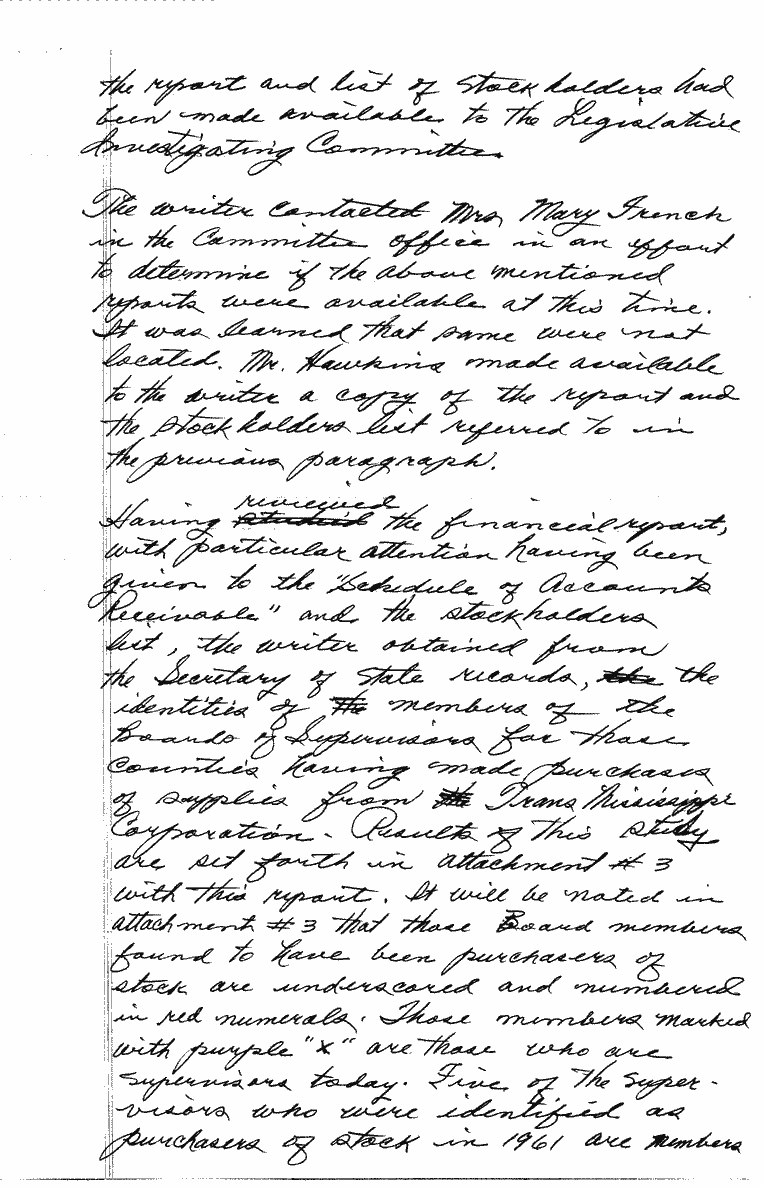 the report and list of stockholders had
been made available to the Legislative
Investigating Committee.
The writer contacted Mrs. Mary French
in the Committee office in an effort
to determine if the above mentioned
reports were available at this time.
It was learned that same were not
located. Mr. Hawkins made available
to the writer a copy of the report and
the stockholders list referred to in
the previous paragraph.
reviewed
Having studied the financial report,
with particular attention having been
given to the "Schedule of Accounts
Receivable" and the stockholders
list, the writer obtained from
the Secretary of State records, the the
identities of the members of the
Boards of Supervisors for those
counties having made purchases
of supplies from the Trans Mississippi
Corporation. Results of this study
are set forth in attachment #3
with this report. It will be noted in
attachment #3 that those Board members
found to have been purchasers of
stock are underscored and numbered
in red numerals. Those members marked
with purple "X" are those who are
supervisors today. Five of the super-
visors who were identified as
purchasers of stock in 1961 are members